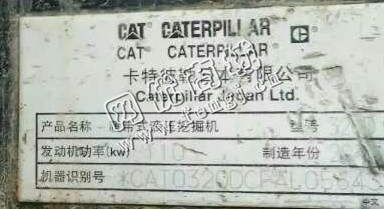 CAT CATERPILLAR
CAT CATERPILLAR
卡特彼勒日本有限公司
Caterpillar Japan Ltd.
产品名称 - 履带式液压挖掘机 型号 320D
发动机功率(kw) 110 制造年份
机器识别号
中文